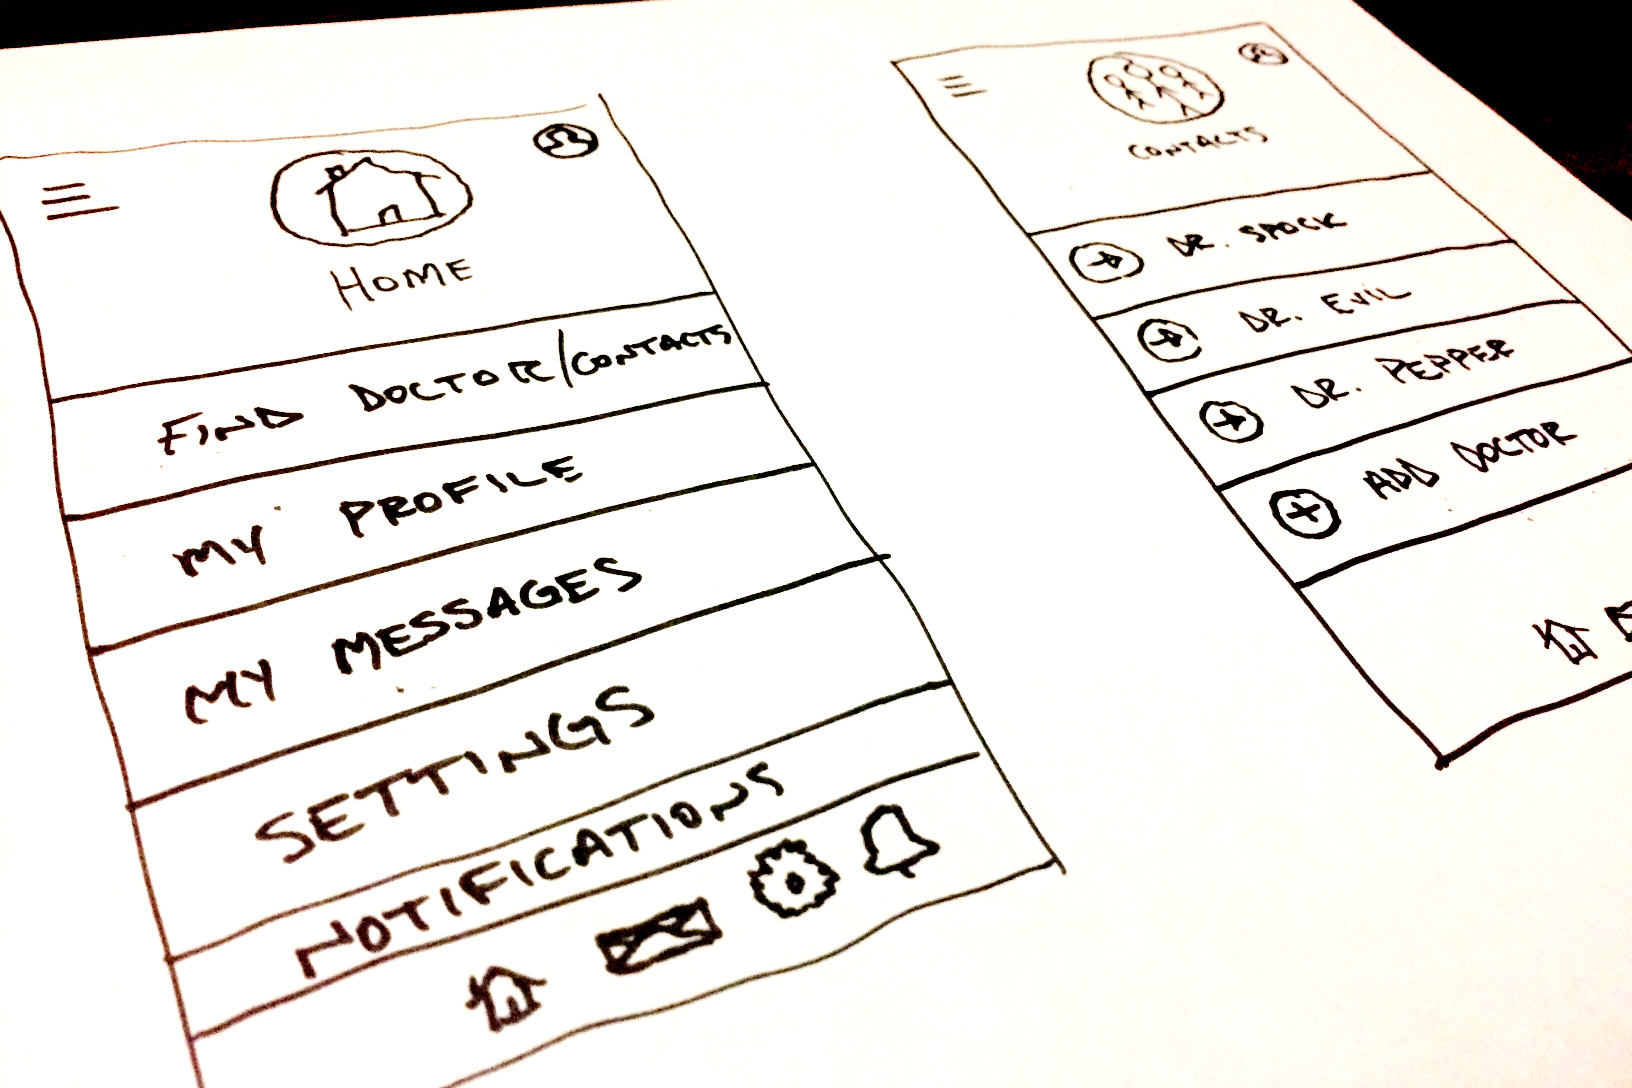 HOME
FIND DOCTOR/CONTACTS
MY PROFILE
MY MESSAGES
SETTINGS
NOTIFICATIONS
CONTACTS
DR. SPOCK
DR. EVIL
DR. PEPPER
ADD DOCTOR